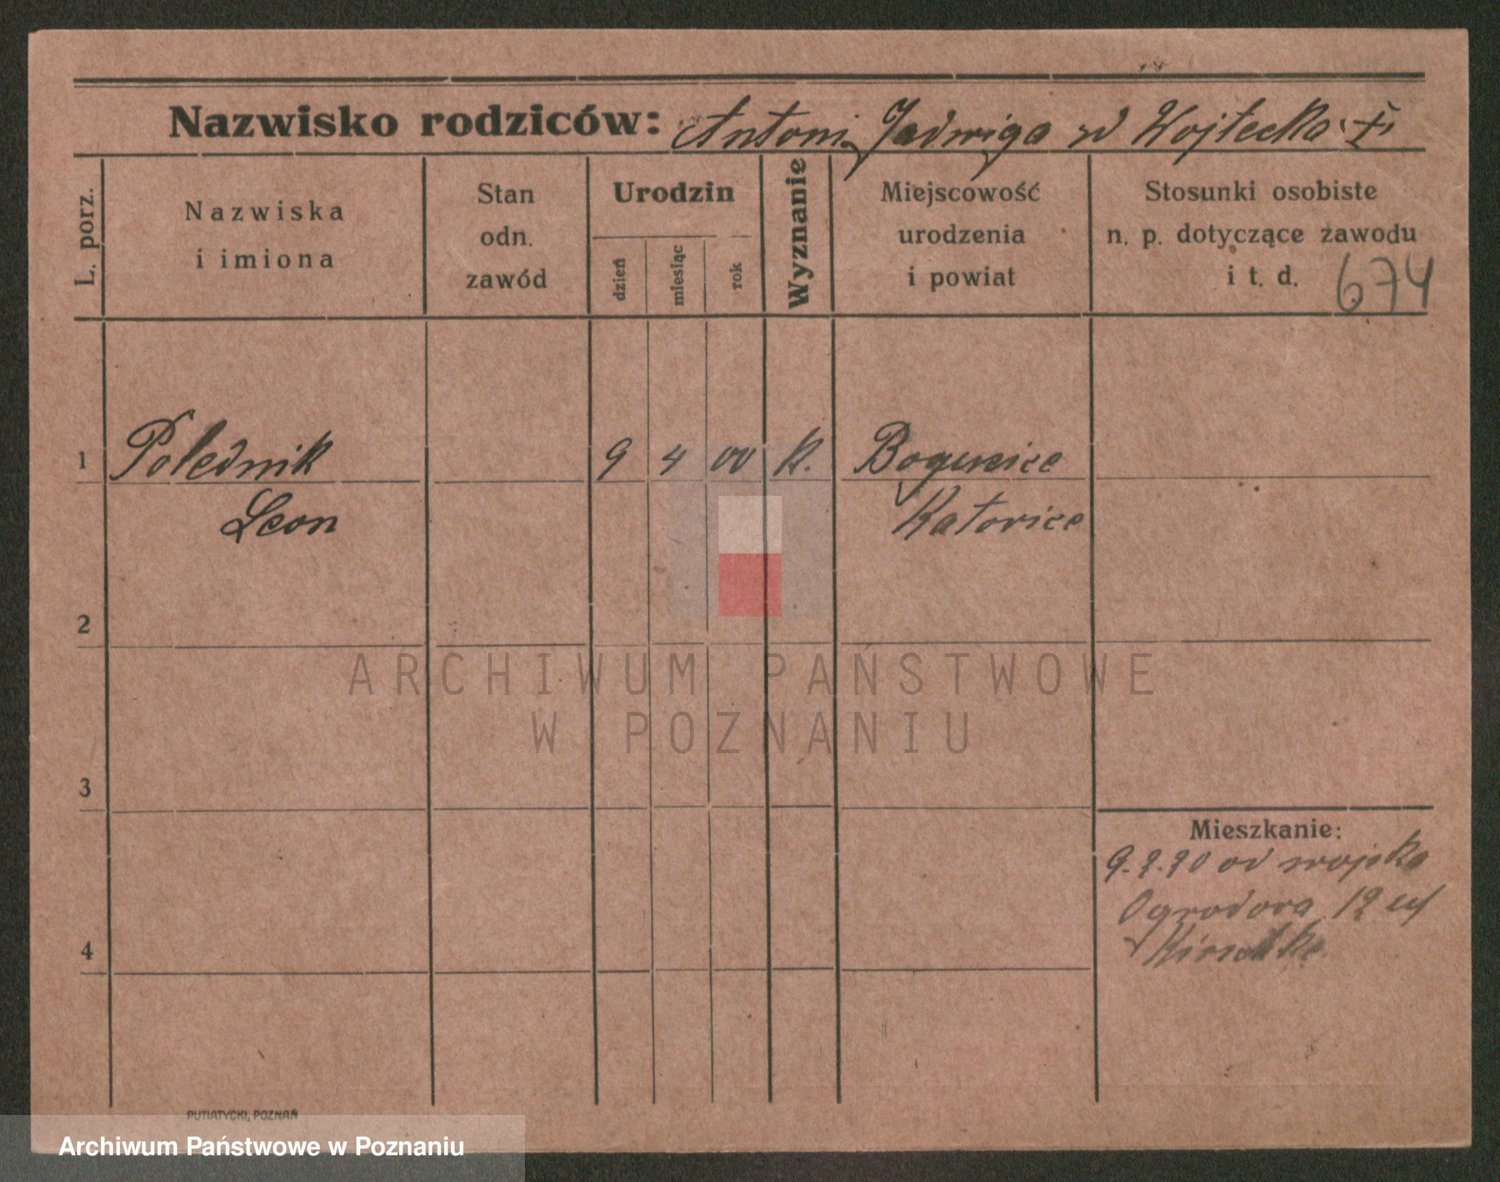 Nazwisko rodziców: Antoni, Jadwiga Wojtecka
L. porz.
Nazwiska
i imiona
Stan
odn.
zawód
Urodzin
dzień
miesiąc
rok
Wyznanie
Miejscowość
urodzenia
i powiat
Stosunki osobiste
n. p. dotyczące zawodu
i t. d. 674
1 Polednik 9 4 00 k.
Leon Katowice
2
ARCHIWUM PAŃSTWOWE
W POZNANIU
3
Mieszkanie:
od wojska
Ogrodowa 12
4
PUTIATYCKI, POZNAŃ
Archiwum Państwowe w Poznaniu